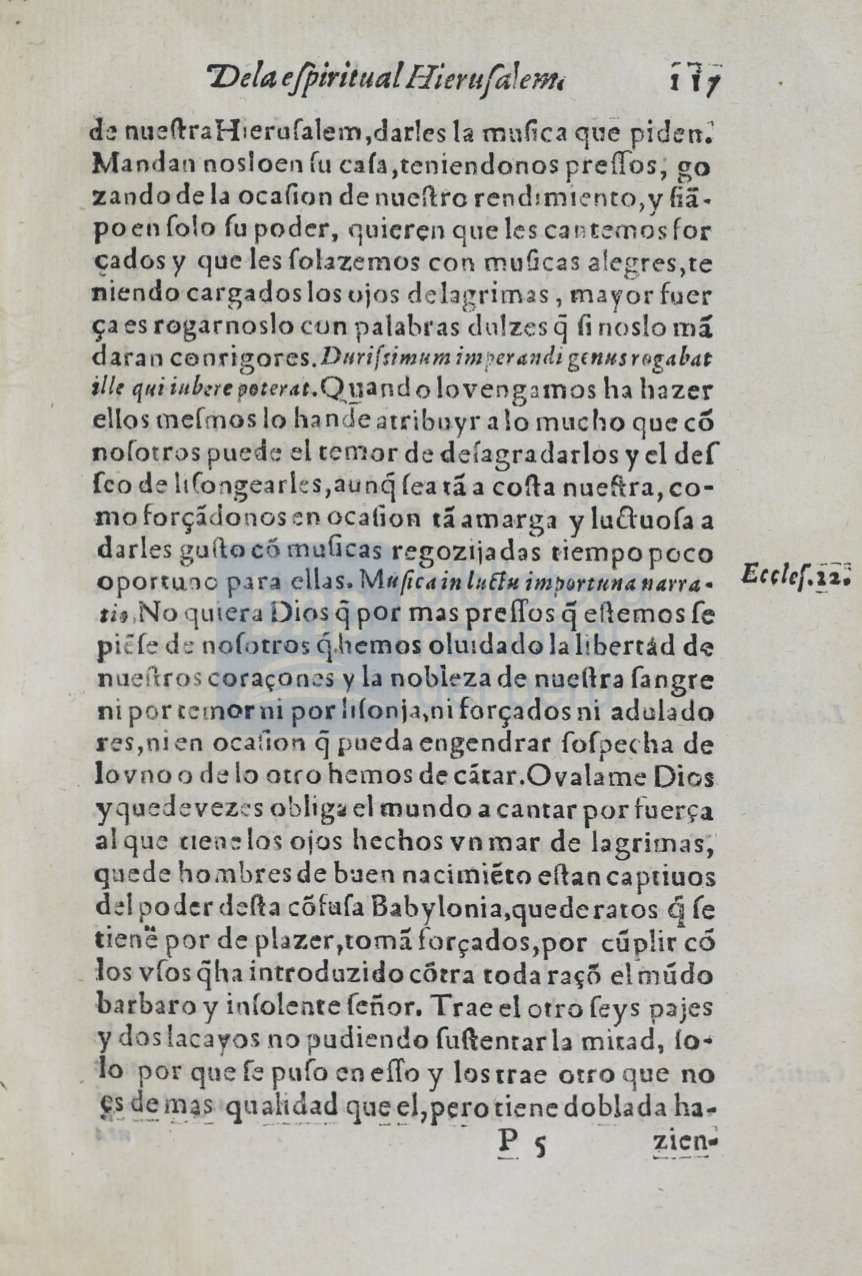 De la eſpiritual Hieruſalem. 117
de nueſtra Hieruſalem, darles la muſica que piden.
Mandan nosloen ſu caſa, teniendonos preſſos, go
zando de la ocaſion de nueſtro rendimiento, y ſiã-
po en ſolo ſu poder, quieren que les cantemos for
çados y que les ſolazemos con muſicas alegres, te
niendo cargados los ojos de lagrimas, mayor fuer
ça es rogarnoslo con palabras dulzes q̃ ſi noslo mã
daran con rigores. Duriſsimum imperandi genus rogabat
ille qui iubere poterat. Quando lo vengamos ha hazer
ellos meſmos lo han de atribuyr a lo mucho que cõ
noſotros puede el temor de deſagradarlos y el deſ
ſeo de liſongearles, aunq̃ ſea tã a coſta nueſtra, co-
mo forçãdonos en ocaſion tã amarga y luctuoſa a
darles guſto cõ muſicas regozijadas tiempo poco
oportuno para ellas. Muſica in luctu importuna narra-
tio. No quiera Dios q̃ por mas preſſos q̃ eſtemos ſe
piẽſe de noſotros q̃ hemos oluidado la libertád de
nueſtros coraçones y la nobleza de nueſtra ſangre
ni por temor ni por liſonja, ni forçados ni adulado
res, ni en ocaſion q̃ pueda engendrar ſoſpecha de
lo vno o de lo otro hemos de cãtar. O valame Dios
y que de vezes obliga el mundo a cantar por fuerça
al que tiene los ojos hechos vn mar de lagrimas,
que de hombres de buen nacimiẽto eſtan captiuos
del poder deſta cõfuſa Babylonia, que de ratos q̃ ſe
tienẽ por de plazer, tomã forçados, por cũplir cõ
los vſos q̃ ha introduzido cõtra toda raçõ el mũdo
barbaro y inſolente ſeñor. Trae el otro ſeys pajes
y dos lacayos no pudiendo ſuſtentar la mitad, ſo-
lo por que ſe puſo en eſſo y los trae otro que no
es de mas qualidad que el, pero tiene doblada ha-
P 5 zien-
Eccleſ. 22.